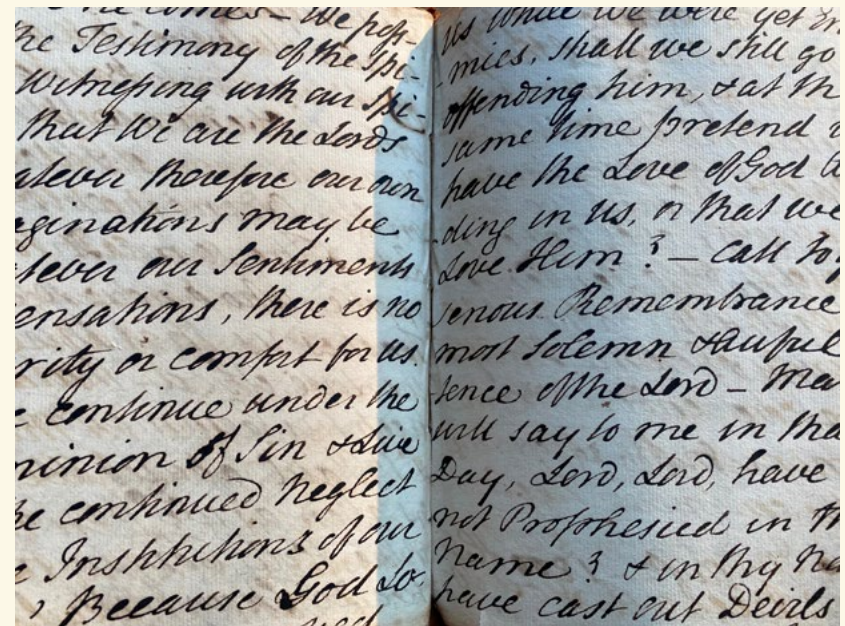 the Testimony of the Spi-
Witnessing with our Spi-
that We are the Lords
therefore our own
may be
our Sentiments
there is no
or comfort for us.
continue under the
of Sin & Live
continued Neglect
Institutions of our
Because God so
us while we were yet
mies, shall we still go
offending him, & at th
same time pretend
have the Love of God
ding in us, or that we
Love Him? – Call to
serious Remembrance
most Solemn & aufull
tence of the Lord – Ma
will say to me in tha
Day, Lord, Lord, have
not Prophesied in th
Name? & in thy Na
have cast out Devils